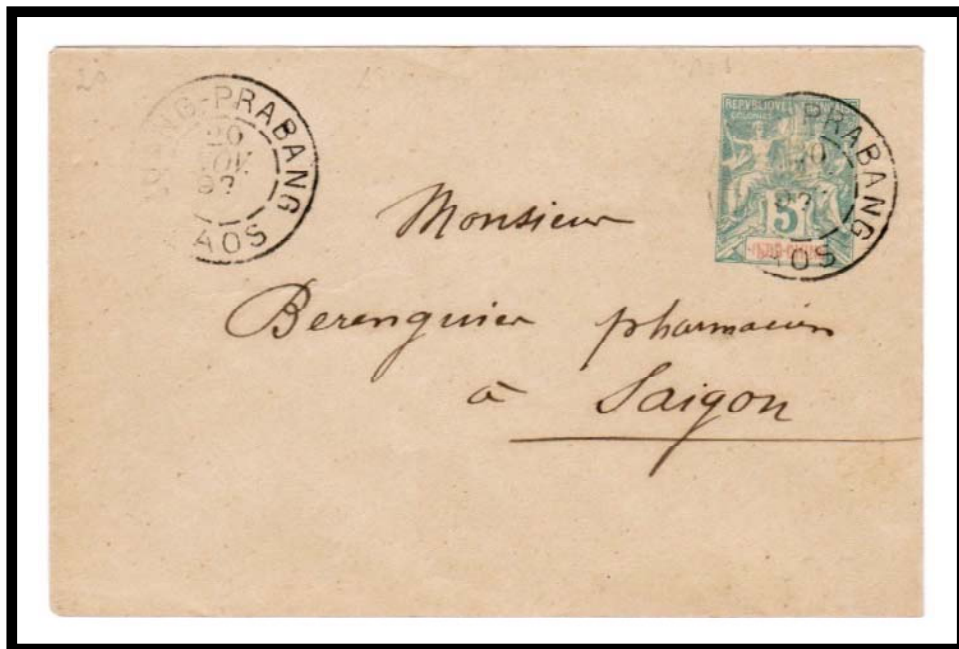 NG-PRABANG
20
AOS
REPVBLIQVE FRANÇAISE
COLONIES
5
INDO-CHINE
PRABANG
AOS
Monsieur
Berenguier pharmacien
à Saigon